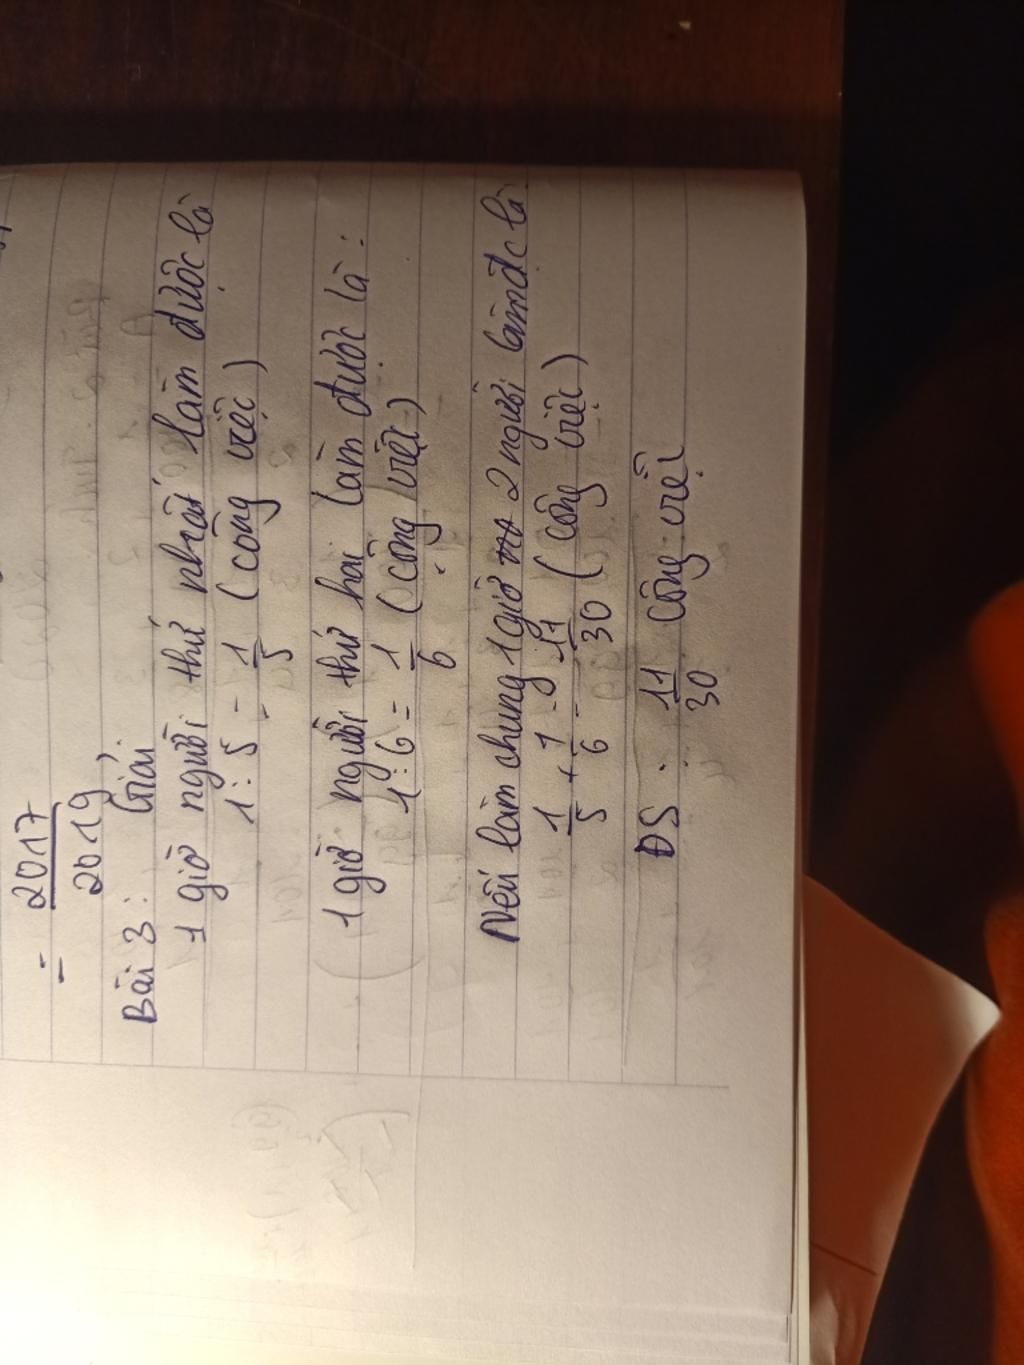 = 2017/2019
Bài 3: Giải
1 giờ người thứ nhất làm được là
1 : 5 = 1/5 (công việc)
1 giờ người thứ hai làm được là :
1 : 6 = 1/6 (công việc)
Nếu làm chung 1 giờ 2 người làm đc là
1/5 + 1/6 = 11/30 (công việc)
ĐS : 11/30 công việc